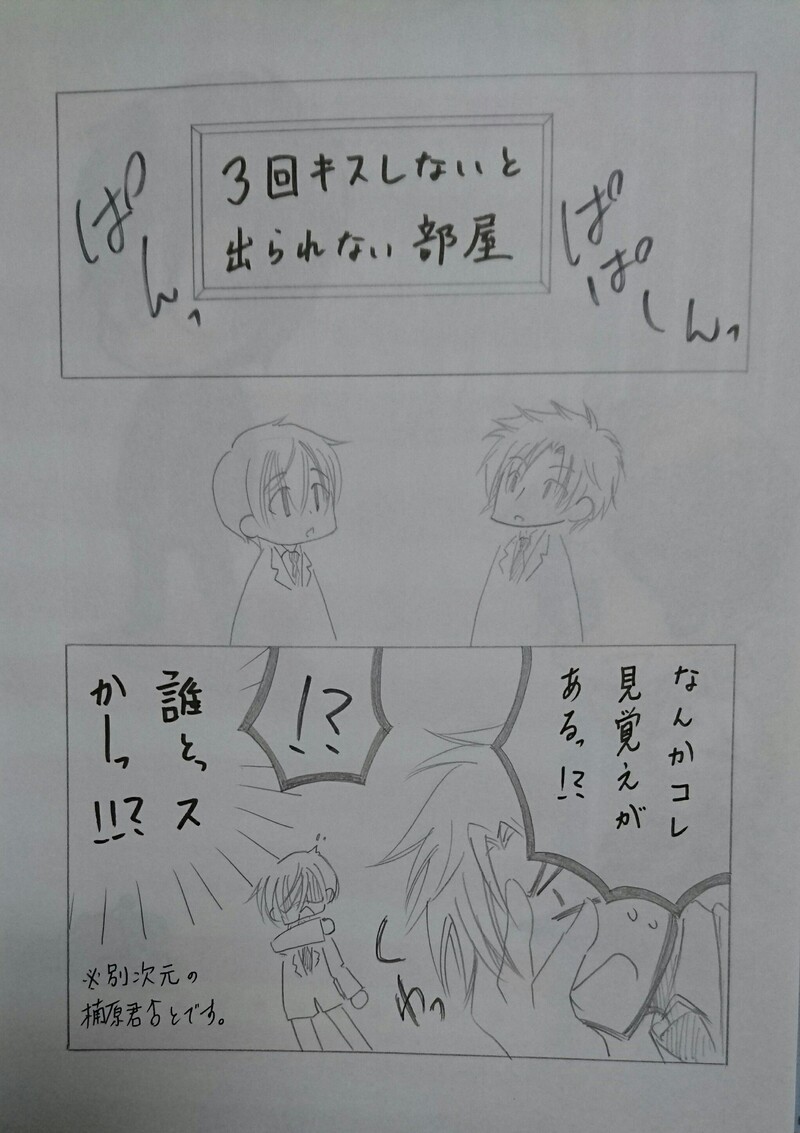 3回キスしないと
出られない部屋
ばんっ
ばばーんっ
なんかコレ
見覚えが
あるっ!?
!?
誰とっス
かーっ!!?
しわっ
※別次元の
楠原君方とです。